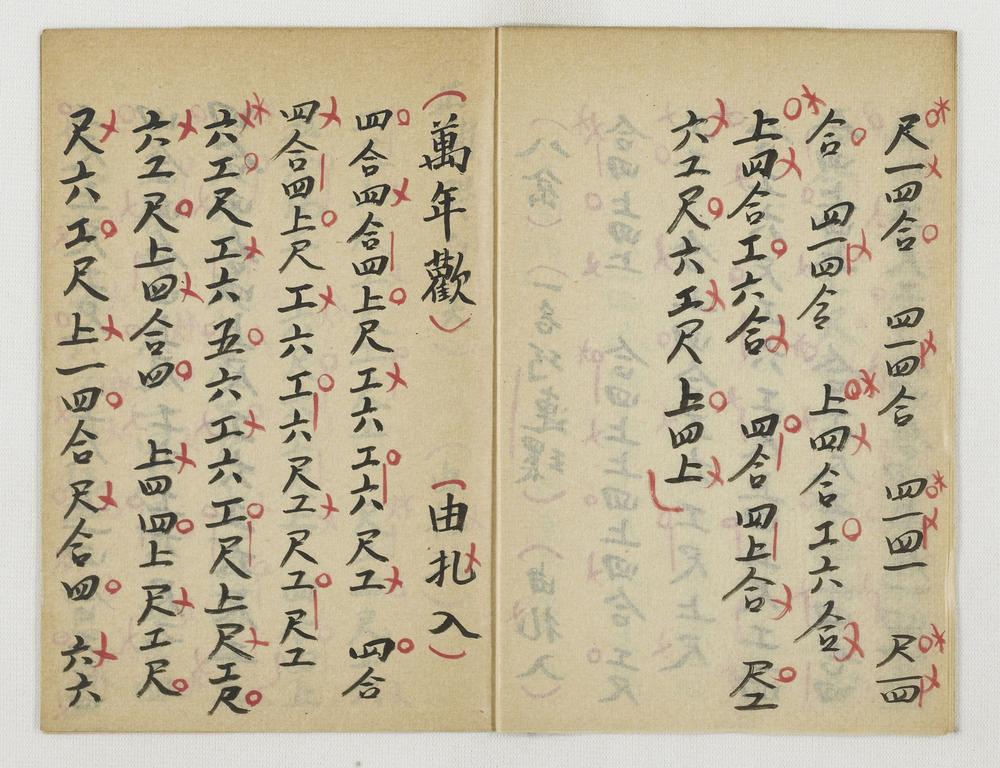 尺一四合 四一四合 四一四一 尺一四
合 四一四合 上四合工六合
上四合工六合 四合四上合 尺工
六工尺六工尺 上四上
(萬年歡) (由扎入)
四合四合四上尺工六工六尺工 四合
四合四上尺工六工六尺工尺工尺工
六工尺工六五六工六工尺上尺工尺
六工尺上四合四 上四四上尺工尺
尺六工尺上一四合尺合四 六六